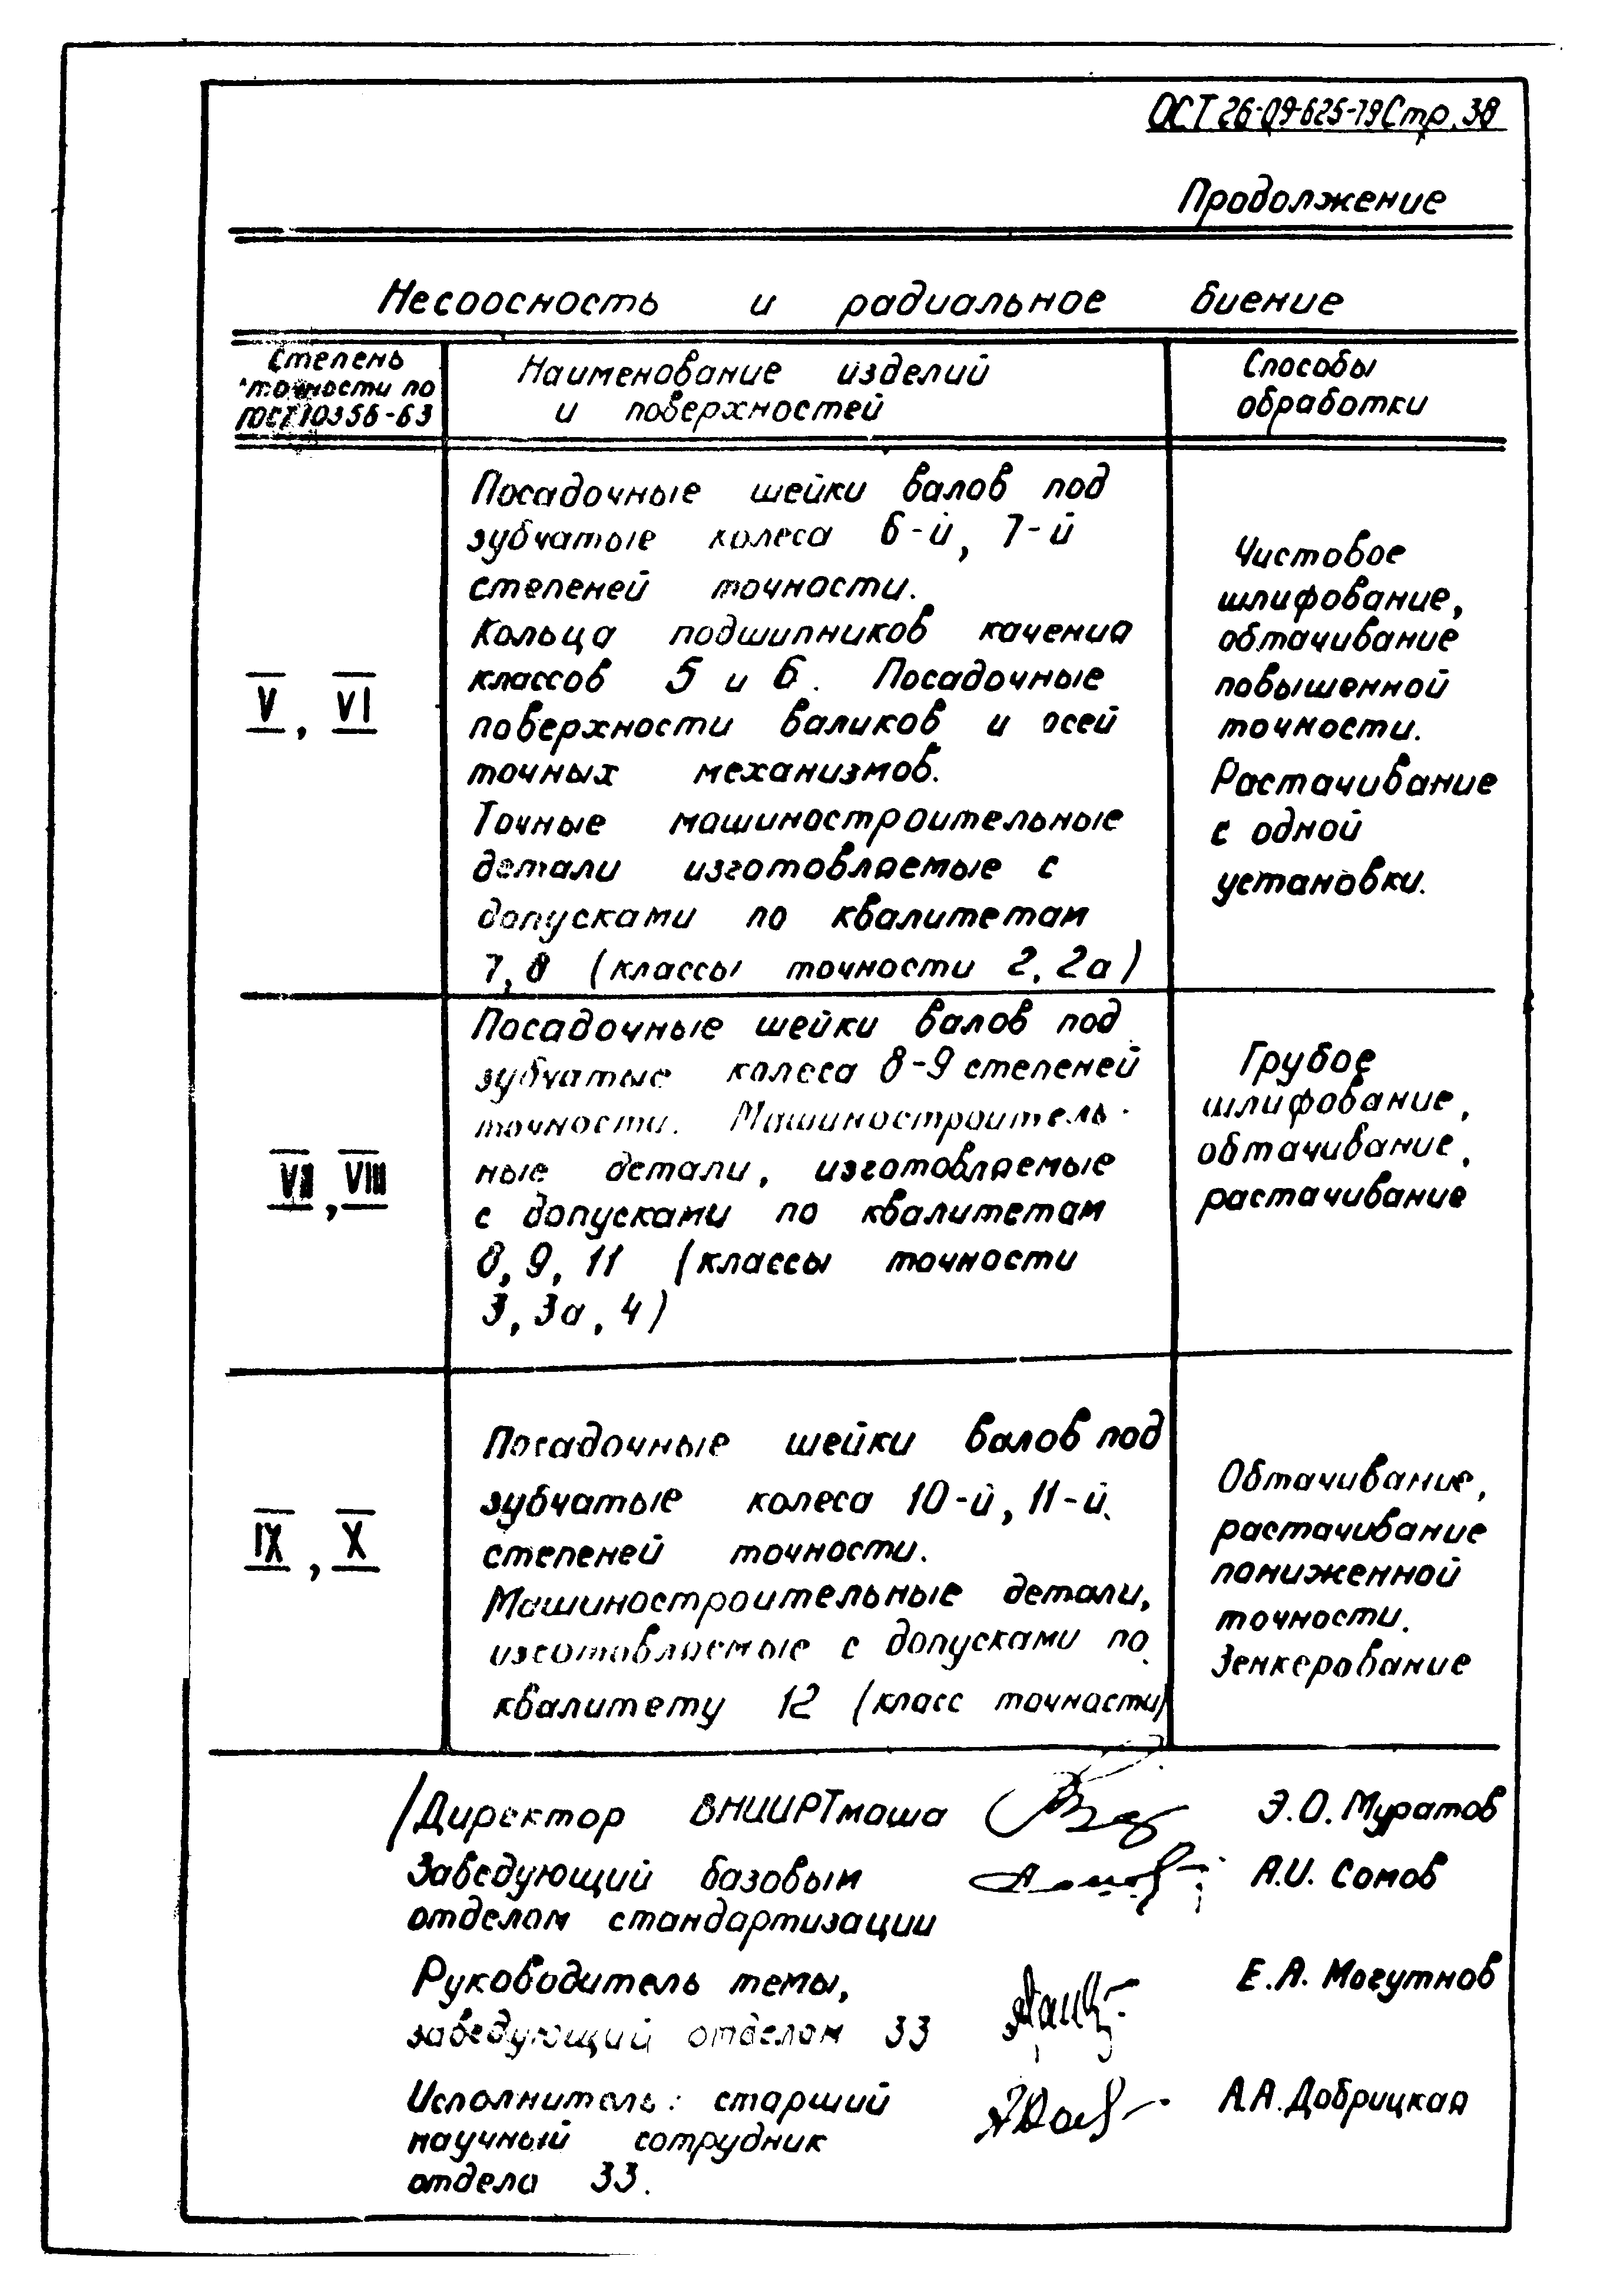 ОСТ 26-09-625-79 Стр. 38
Продолжение
Несоосность и радиальное биение
Степень
точности по
ГОСТ 10356-63
Наименование изделий
и поверхностей
Способы
обработки
V, VI
Посадочные шейки валов под
зубчатые колеса 6-й, 7-й
степеней точности.
Кольца подшипников качения
классов 5 и 6. Посадочные
поверхности валиков и осей
точных механизмов.
Точные машиностроительные
детали изготовляемые с
допусками по квалитетам
7, 8 (классы точности 2, 2а)
Чистовое
шлифование,
обтачивание
повышенной
точности.
Растачивание
с одной
установки.
VII, VIII
Посадочные шейки валов под
зубчатые колеса 8-9 степеней
точности. Машиностроитель-
ные детали, изготовляемые
с допусками по квалитетам
8, 9, 11 (классы точности
3, 3а, 4)
Грубое
шлифование,
обтачивание,
растачивание
IX, X
Посадочные шейки валов под
зубчатые колеса 10-й, 11-й
степеней точности.
Машиностроительные детали,
изготовляемые с допусками по
квалитету 12 (класс точности)
Обтачивание,
растачивание
пониженной
точности.
Зенкерование
Директор ВНИИРТмаша Э.О. Муратов
Заведующий базовым А.И. Сомов
отделом стандартизации
Руководитель темы, Е.А. Могутнов
заведующий отделом 33
Исполнитель: старший А.А. Добрицкая
научный сотрудник
отдела 33.